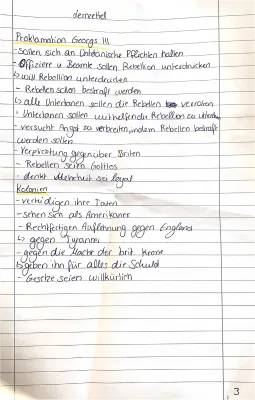 Lernzettel
Proklamation Georgs III
- sollen sich an Untänische Pflichten halten
- Offiziere u Beamte sollen Rebellion unterdrücken
↳ will Rebellion unterdrücken
- Rebellen sollen bestraft werden
↳ alle Untertanen sollen die Rebellen verraten
- Untertanen sollen mithelfen die Rebellion zu
- versucht Angst zu verbreiten, indem Rebellen bestraft
werden sollen
- gegenüber Briten
- Rebellen seien Gottlos
- denkt Mehrheit sei loyal
Kolonien
- verteidigen ihre Taten
- sehen sich als Amerikaner
- Rechtfertigen Auflehnung gegen England
↳ gegen Tyrannei
- gegen die Macht der brit. Krone
↳ geben ihn für alles die Schuld
- Gesetze seien willkürlich
3